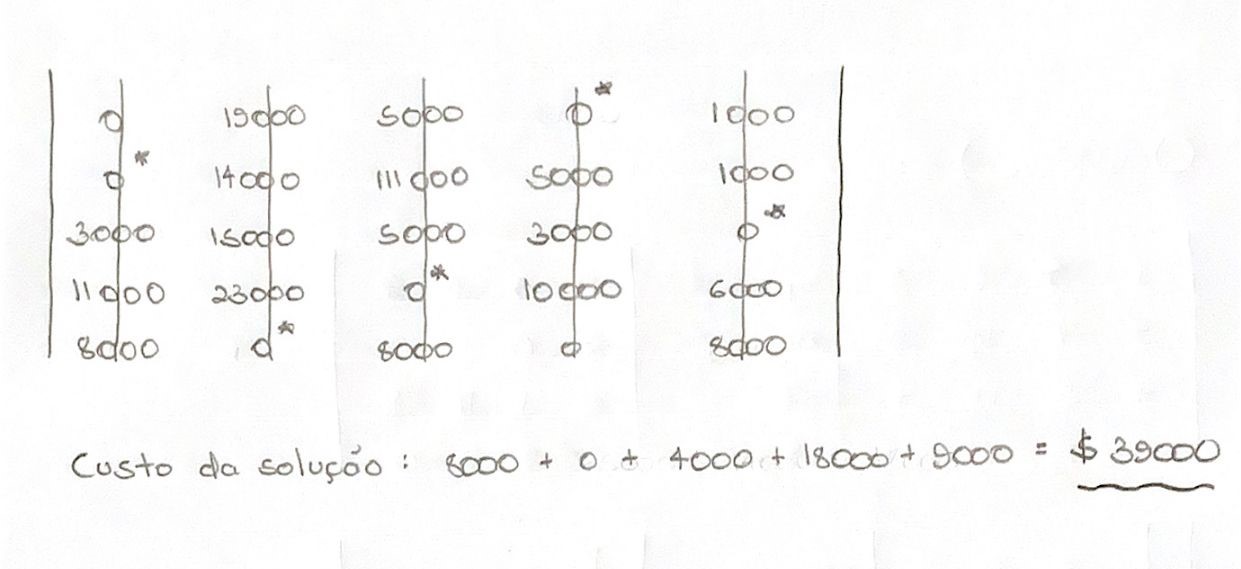 0 19000 5000 0* 1000
0* 14000 111000 5000 1000
3000 15000 5000 3000 0*
11000 23000 0* 10000 6000
8000 0* 8000 0 8000
Custo da solução: 8000 + 0 + 4000 + 18000 + 9000 = $ 39000